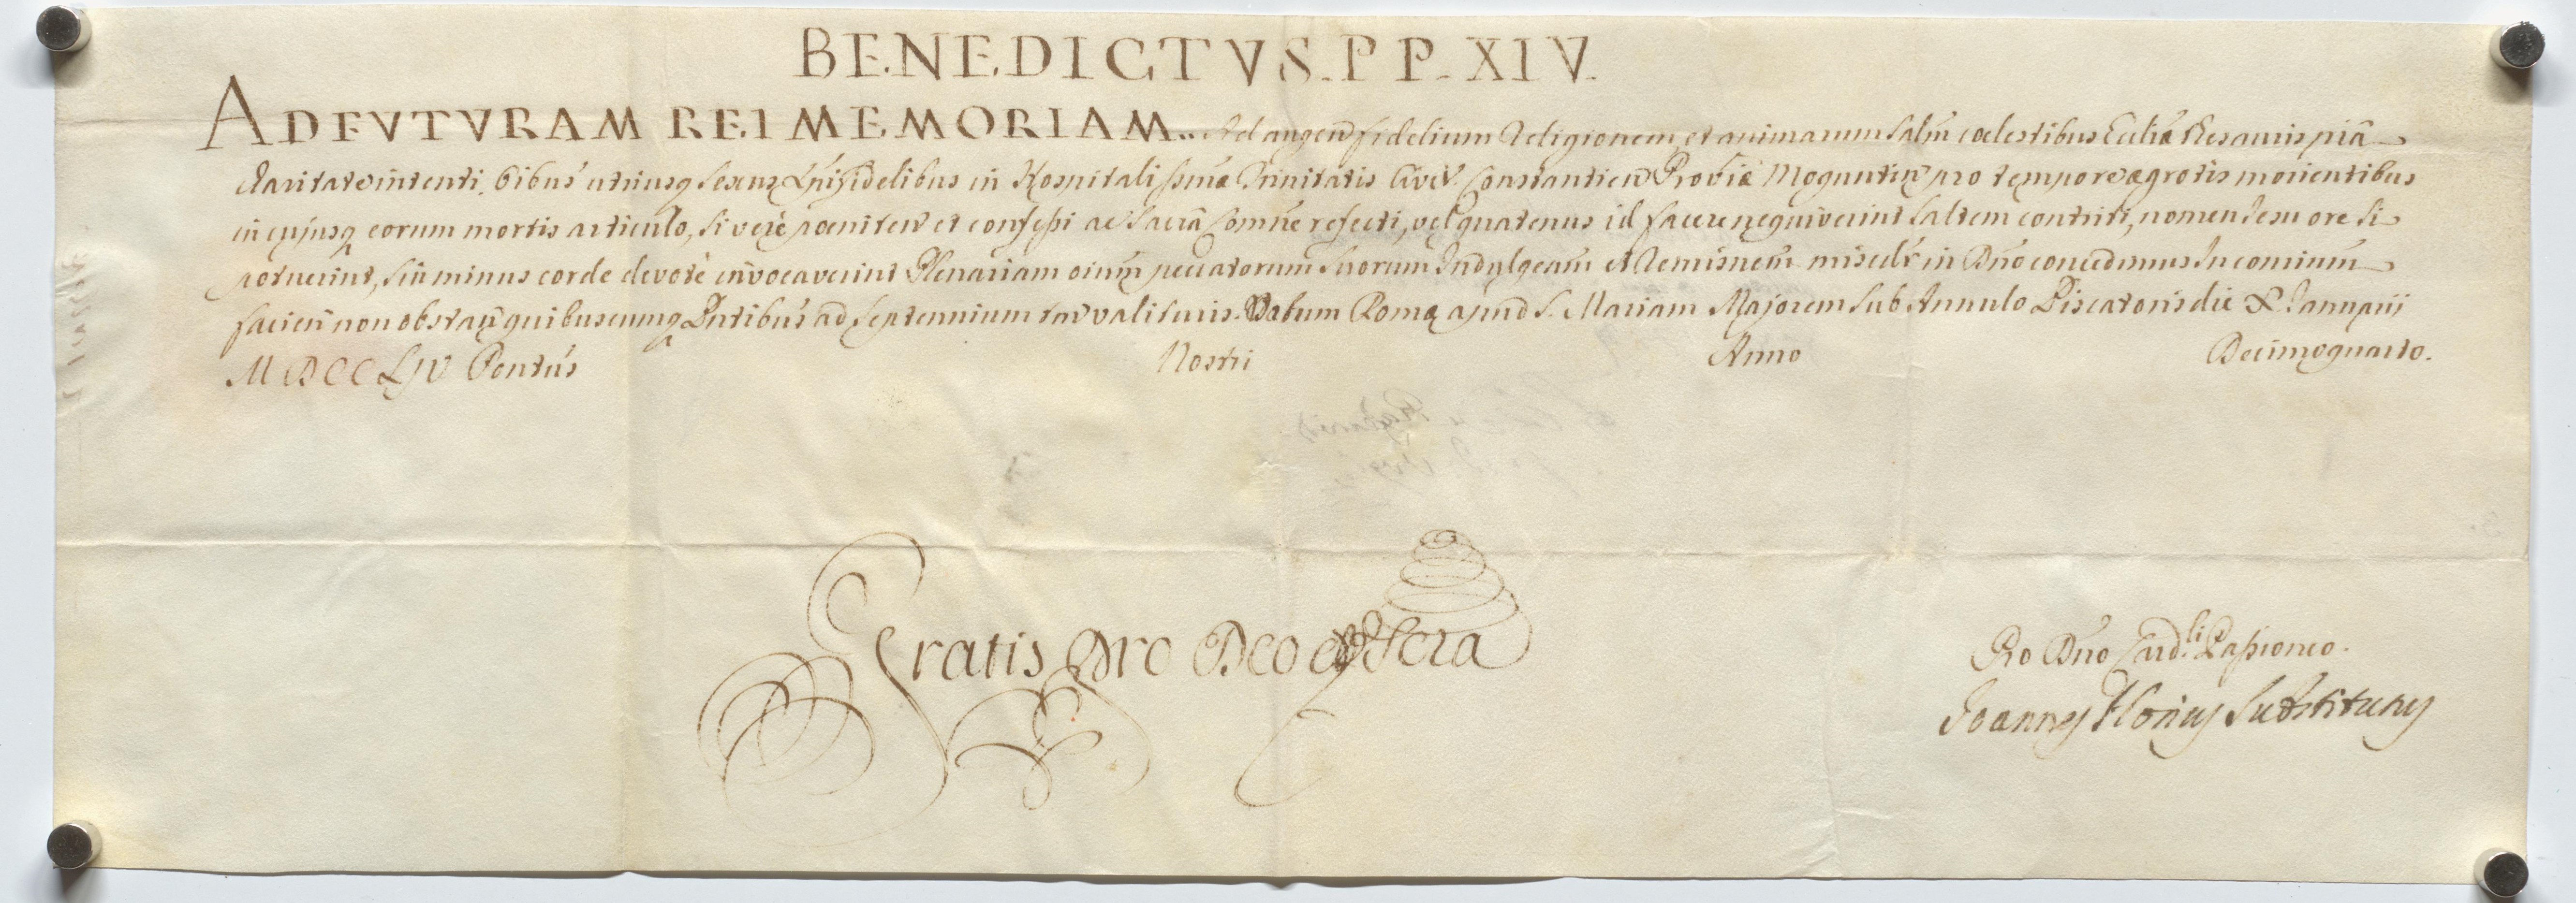 BENEDICTVS. PP. XIV.
AD FVTVRAM REI MEMORIAM.. Ad augen fidelium Religionem, et animarum salm coelestibus Ecclie thesauris pia
charitate intenti, oibus utriusq sexus Xpifidelibus in Hospitali ssme Trinitatis Civit Constantien Provie Moguntin pro tempore ægrotis morientibus
in cujusq eorum mortis articulo, si verè poeniten et confessi ac sacra Comne refecti, vel quatenus id facere nequiverint saltem contriti, nomen Jesu ore si
potuerint, sin minus corde devotè invocaverint Plenariam oium peccatorum suorum Indulgeam et remisnem misclr in Dno concedimus In contrium
facien non obstan quibuscumq Pntibus ad septennium tm valituris. Datum Romæ apud S. Mariam Majorem sub Annulo Piscatoris die X Januarii
MDCCLIV Pontus Nostri Anno Decimoquarto.
Gratis pro Deo et Scra
Pro Dno Cardli Passioneo.
Joannes Florius Substitutus